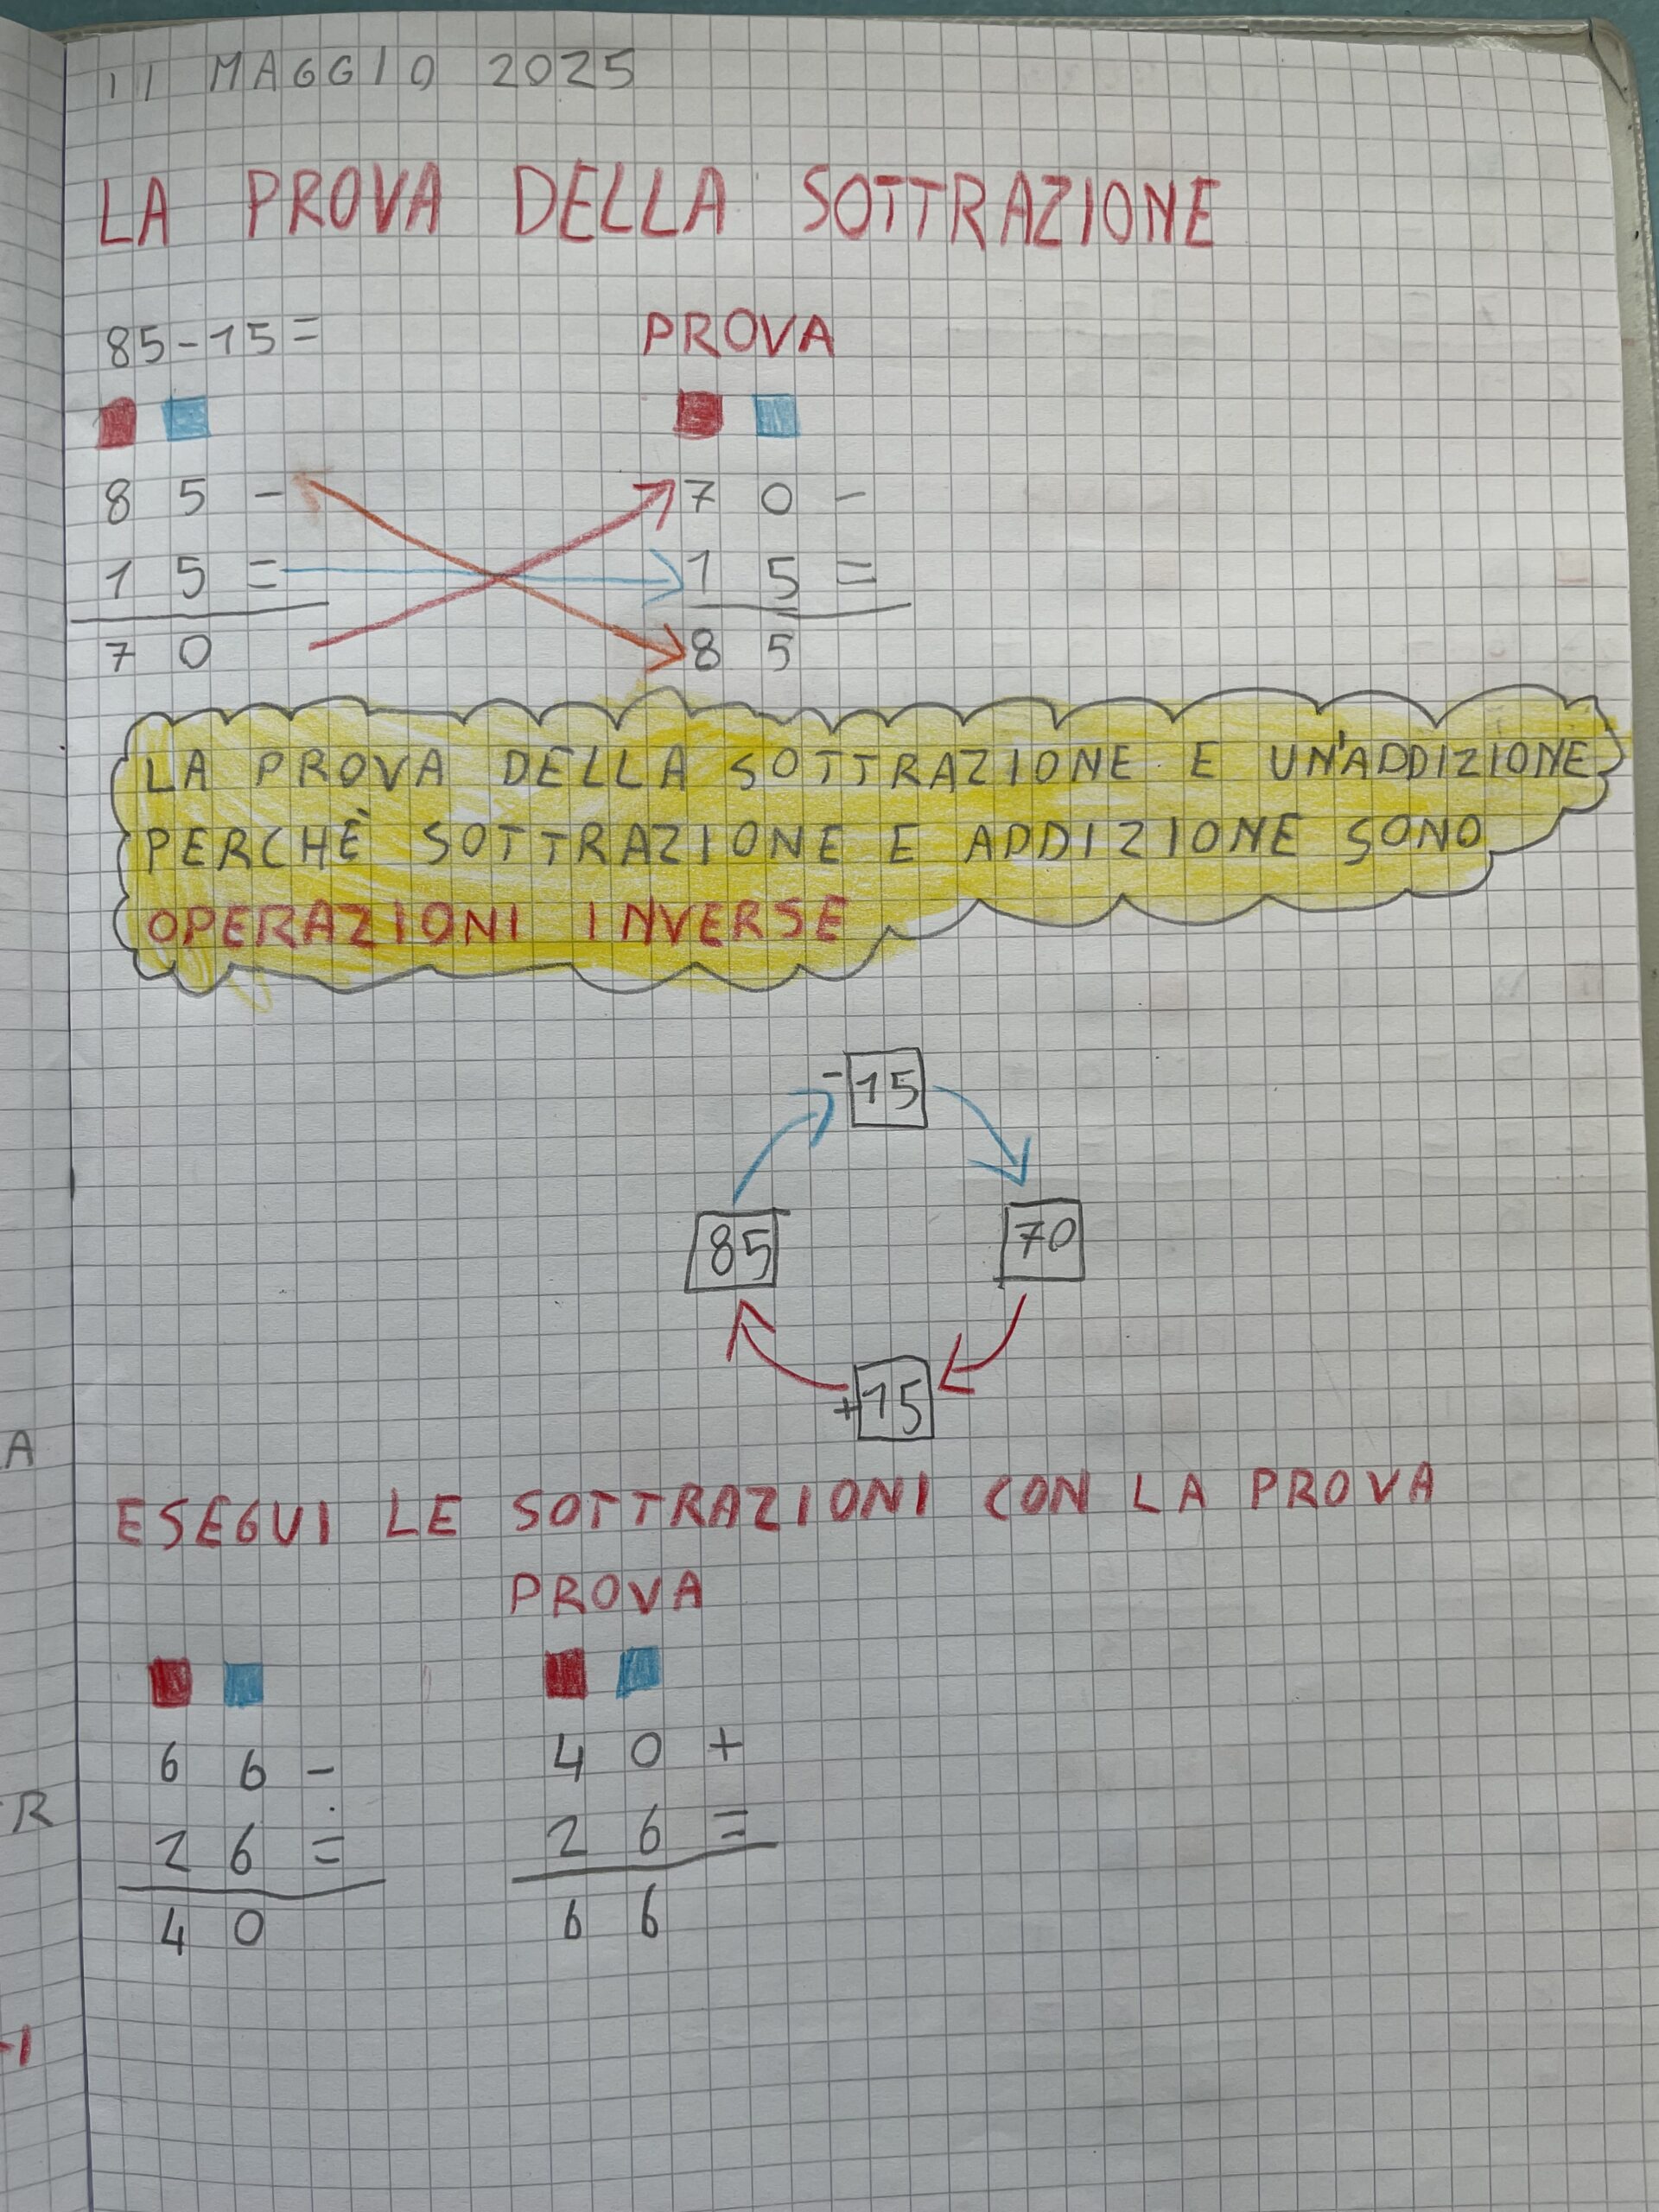 11 MAGGIO 2025
LA PROVA DELLA SOTTRAZIONE
85-15= PROVA
8 5 - 7 0 -
1 5 = 1 5 =
7 0 8 5
LA PROVA DELLA SOTTRAZIONE E UN'ADDIZIONE
PERCHÈ SOTTRAZIONE E ADDIZIONE SONO
OPERAZIONI INVERSE
-15
85 70
+15
ESEGUI LE SOTTRAZIONI CON LA PROVA
PROVA
6 6 - 4 0 +
2 6 = 2 6 =
4 0 6 6
A
R